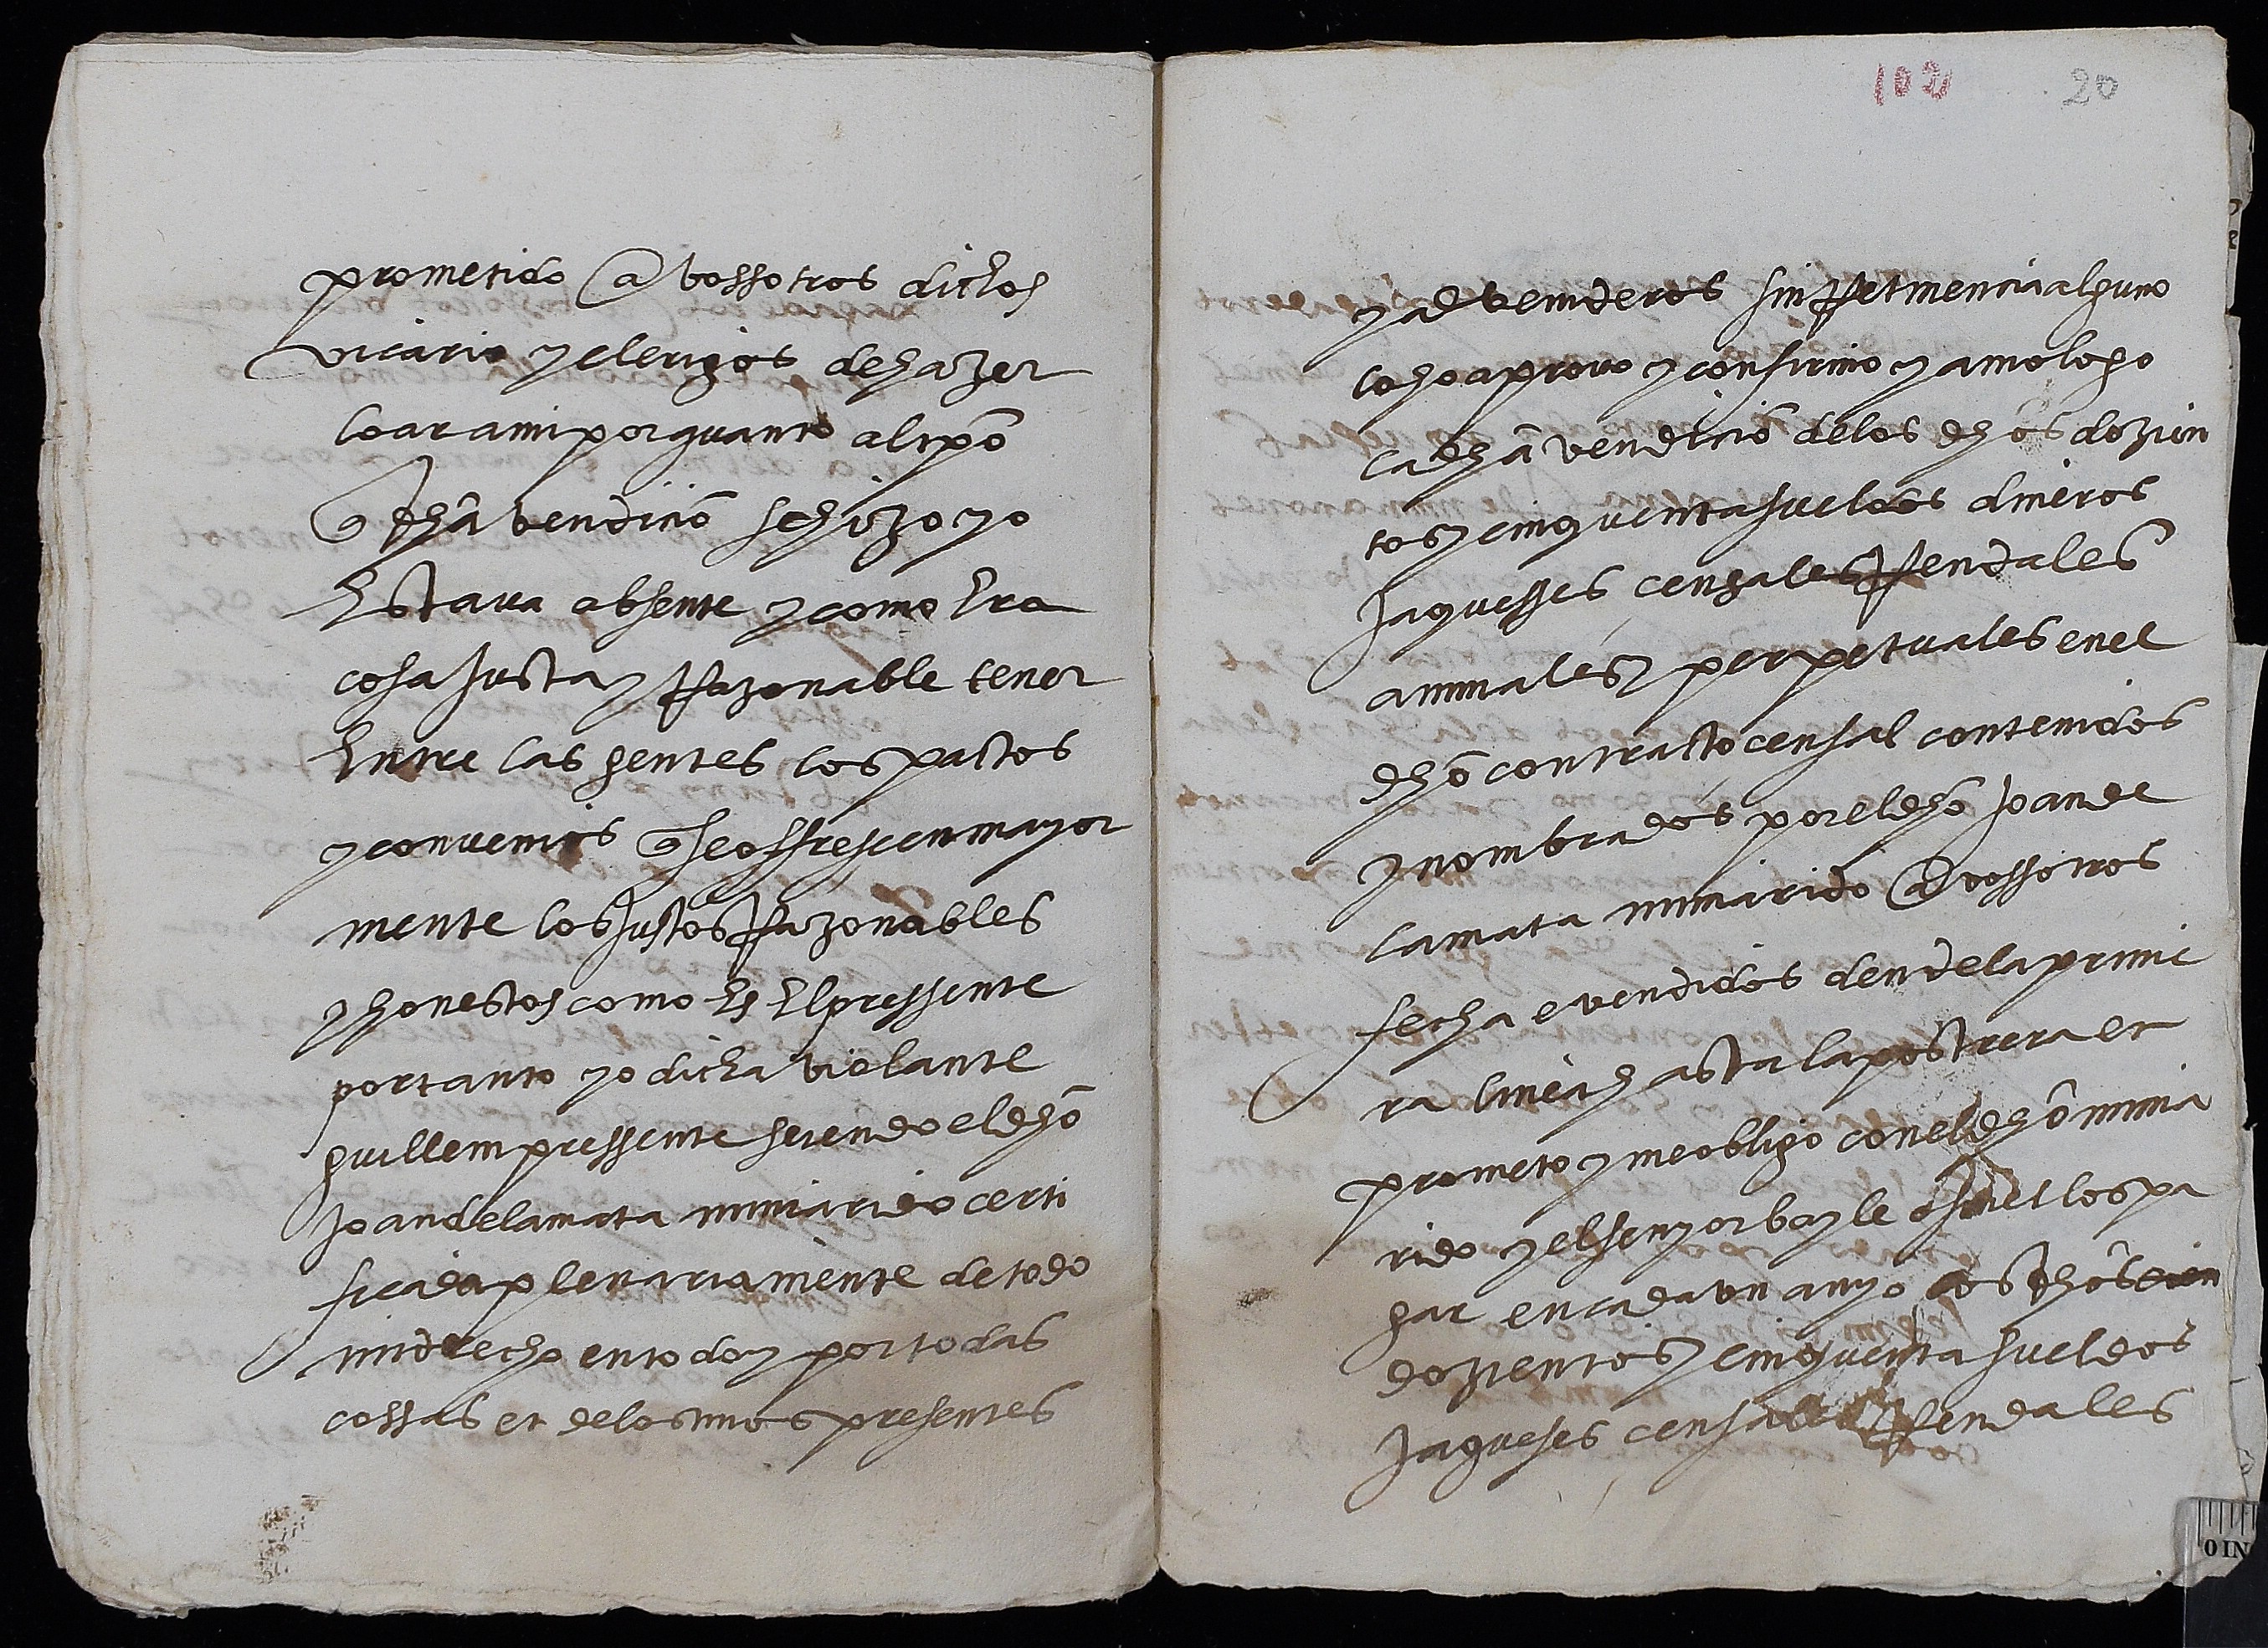 prometido a vossotros dichos
vicario y clerigos de hazer
loar a mi por quanto al tpõ
q̃ dhã vendiciõ se hizo yo
Estava absente y como Era
cosa Justa y Razonable tener
Entre las gentes los pactos
y convenios q̃ se offrescen mayor
mente los Justos Razonables
y honestos como Es El pressente
por tanto yo dicha violante
guillem pressente siendo el dhõ
Joan de la mata mi marido certi
ficada plenariamente de todo
mi drecho en todo y por todas
cossas et de los mios presentes
102 20
y advenideros sin Retinencia alguno
loho aprovo y confirmo y amologo
la dhã vendiciõ de los dhõs dozien
tos y cinquenta sueldos dineros
Jaquesses censales Rendales
annuales y perpetuales en el
dhõ contracto censal contenidos
y nombrados por el dhõ Joan de
la mata mi marido a vossotros
fecha e vendidos dende la prime
ra linea hasta la postrera et
prometo y me obligo con el dhõ mi ma
rido y el senyor bayle los pa
gar en cada un anyo los dhõs
dozientos y cinquenta sueldos
Jaqueses censales Rendales
0 IN